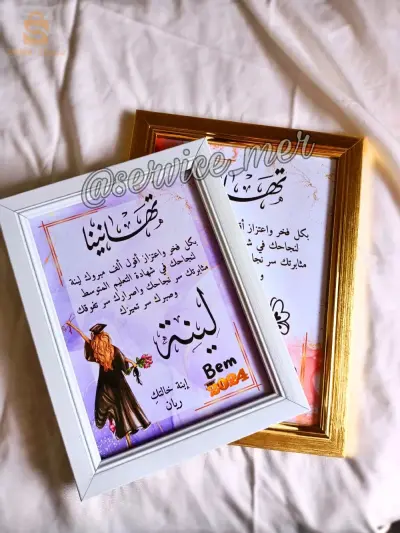 @service_mer
تهانينا
بكل فخر واعتزاز أقول ألف مبروك لينة
لنجاحك في شهادة التعليم المتوسط
مثابرتك سر نجاحك واصرارك سر تفوقك
وصبرك سر تميزك
لينة
Bem
2024
إبنة خالتكِ
ريان
بكل فخر واعتزاز أق
لنجاحك في ش
مثابرتك سر نجا